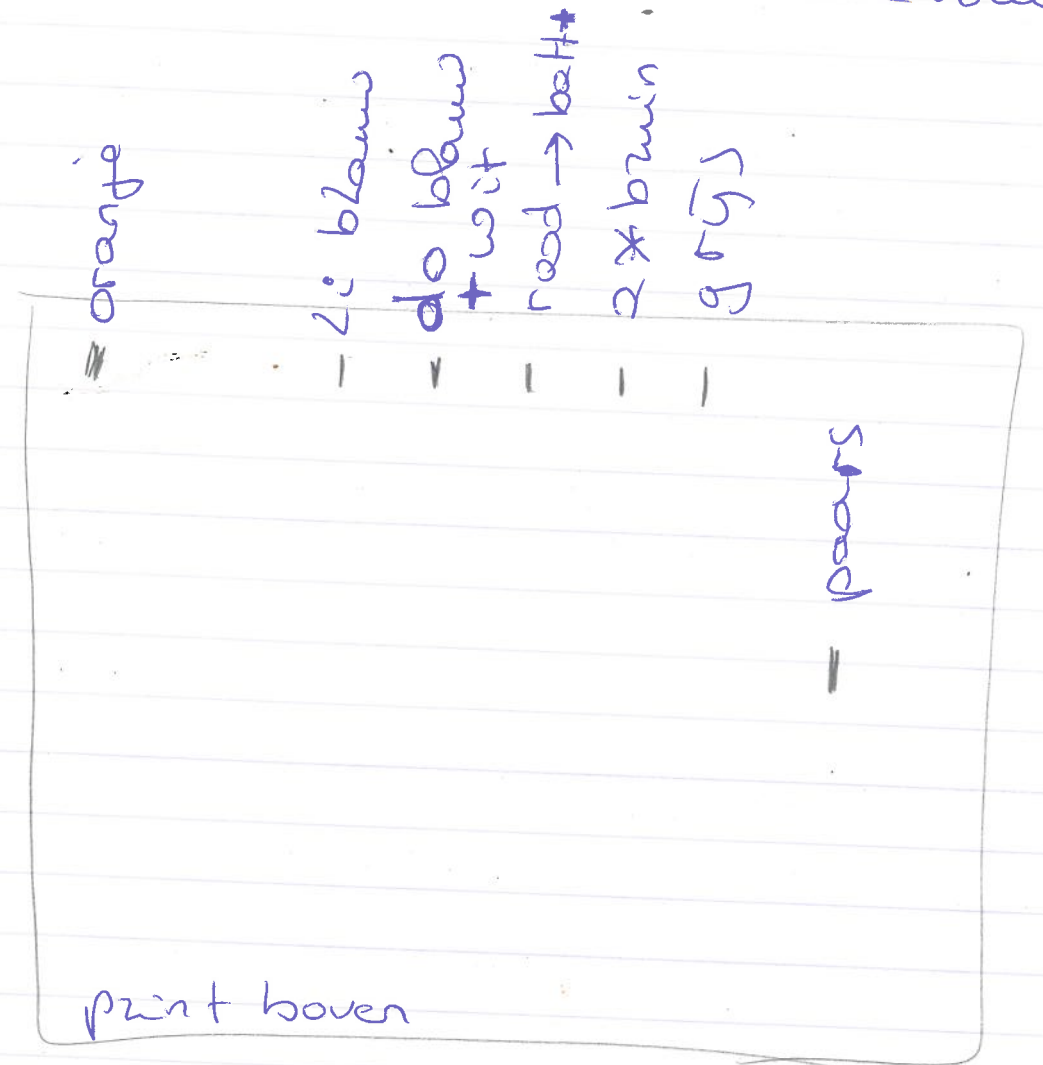 orang
li blauw
do blauw
+ wit
rood → batt+
2 * bruin
grijs
paars
print boven